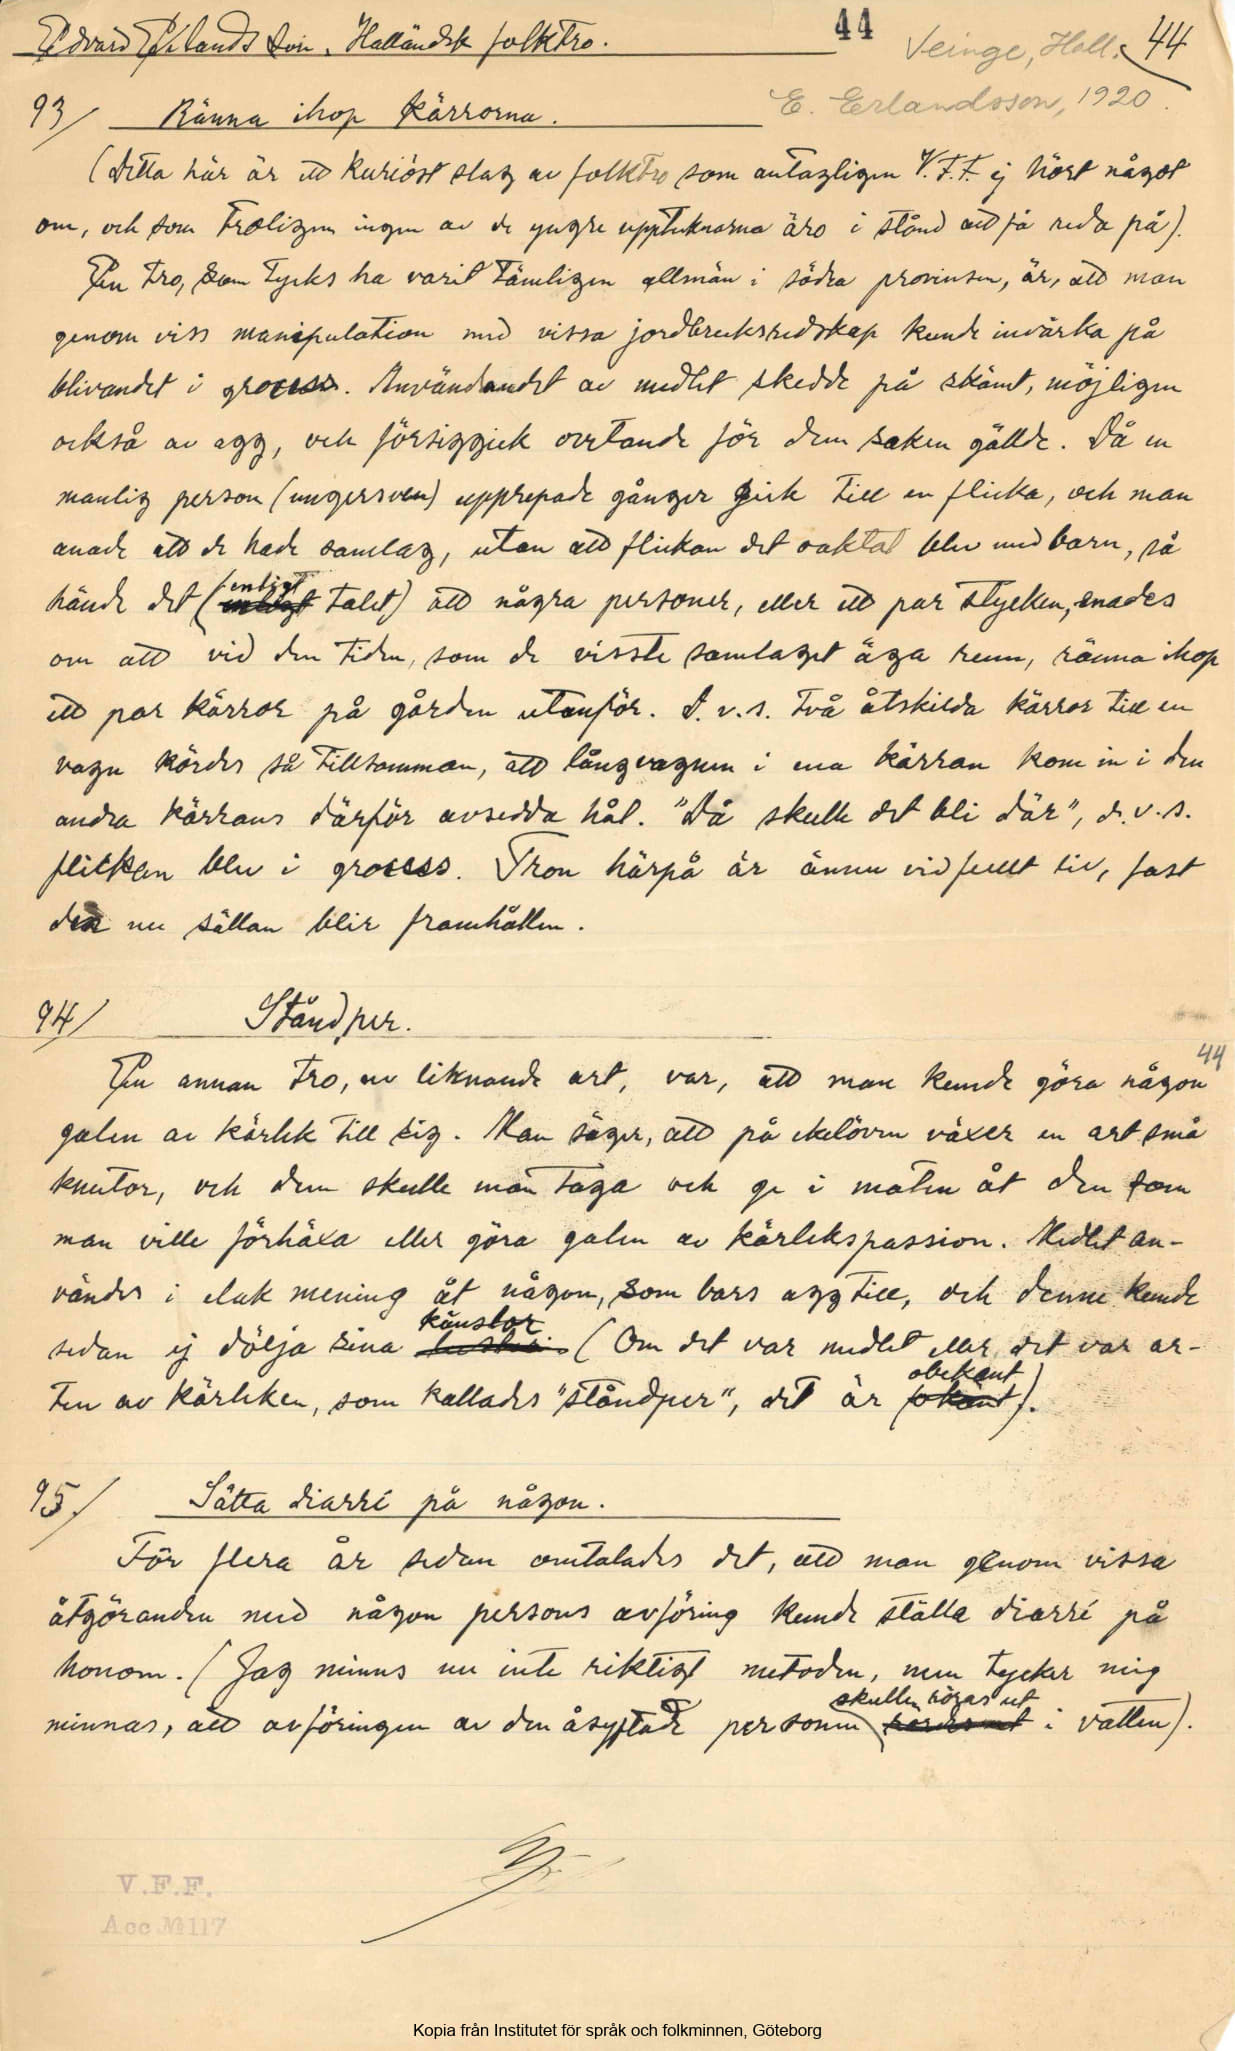 Edvard Erlandsson. Halländsk folktro.
44
Veinge, Hall. 44
E. Erlandsson, 1920.
93/ Ränna ihop kärrorna.
(Detta här är ett kuriöst slag av folktro som antagligen V.F.F. ej hört något
om, och som troligen ingen av de yngre upptecknarna äro i stånd att få reda på).
En tro, som tycks ha varit tämligen allmän i södra provinsen, är, att man
genom viss manipulation med vissa jordbruksredskap kunde invärka på
blivandet i grocess. Användandet av medlet skedde på skämt, möjligen
också av agg, och försiggick ovetande för dem saken gällde. Då en
manlig person (ungersven) upprepade gånger gick till en flicka, och man
anade att de hade samlag, utan att flickan det oaktat blev med barn, så
hände det (enligt talet) att några personer, eller ett par stycken, enades
om att vid den tiden, som de visste samlaget äga rum, ränna ihop
ett par kärror på gården utanför. D.v.s. två åtskilda kärror till en
vagn kördes så tillsamman, att långvagnen i ena kärran kom in i den
andra kärrans därför avsedda hål. "Då skulle det bli där", d.v.s.
flickan blev i grocess. Tron härpå är ännu vid fullt liv, fast
den nu sällan blir framhållen.
94/ Ståndper.
44
En annan tro, av liknande art, var, att man kunde göra någon
galen av kärlek till sig. Man säger, att på ekelöven växer en art små
knutor, och dem skulle man taga och ge i maten åt den som
man ville förhäxa eller göra galen av kärlekspassion. Medlet an-
vändes i elak mening åt någon, som bars agg till, och denne kunde
sedan ej dölja sina känslor. (Om det var medlet eller det var ar-
ten av kärleken, som kallades "ståndper", det är obekant).
95/ Sätta diarré på någon.
För flera år sedan omtalades det, att man genom vissa
åtgöranden med någon persons avföring kunde ställa diarré på
honom. (Jag minns nu inte riktigt metoden, men tycker mig
minnas, att avföringen av den åsyftade personen skullen röras ut i vatten).
V.F.F.
Acc № 117
Kopia från Institutet för språk och folkminnen, Göteborg